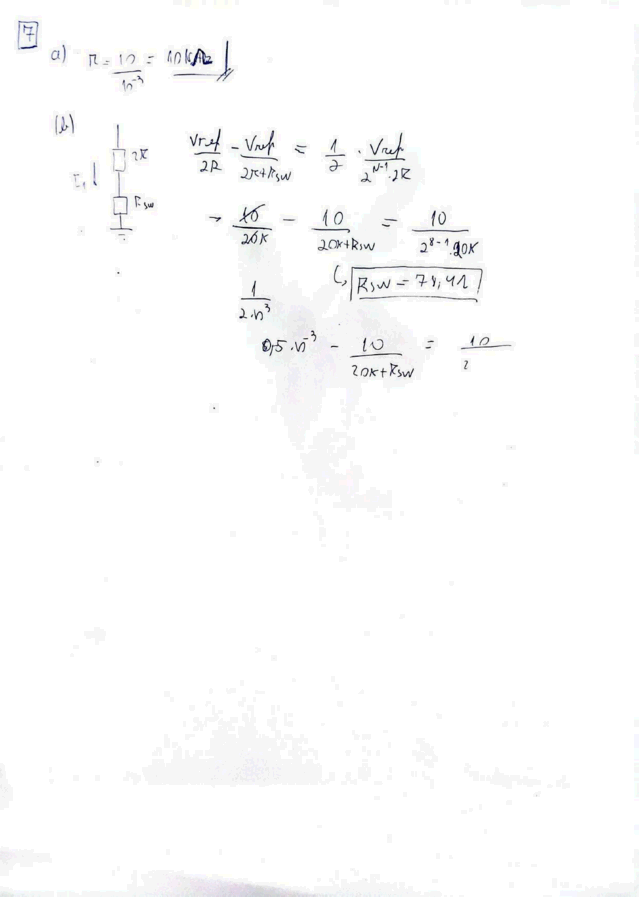 7
a) R = 10 / 10^-3 = 10kΩ
(b)
2R
I1
Rsw
Vref/2R - Vref/(2R+Rsw) = 1/2 · Vref/(2^(N-1)·2R)
→ 10/20K - 10/(20K+Rsw) = 10/(2^(8-1)·20K)
↳ Rsw = 78,4Ω
1/(2·10^3)
0,5·10^-3 - 10/(20K+Rsw) = 10/2